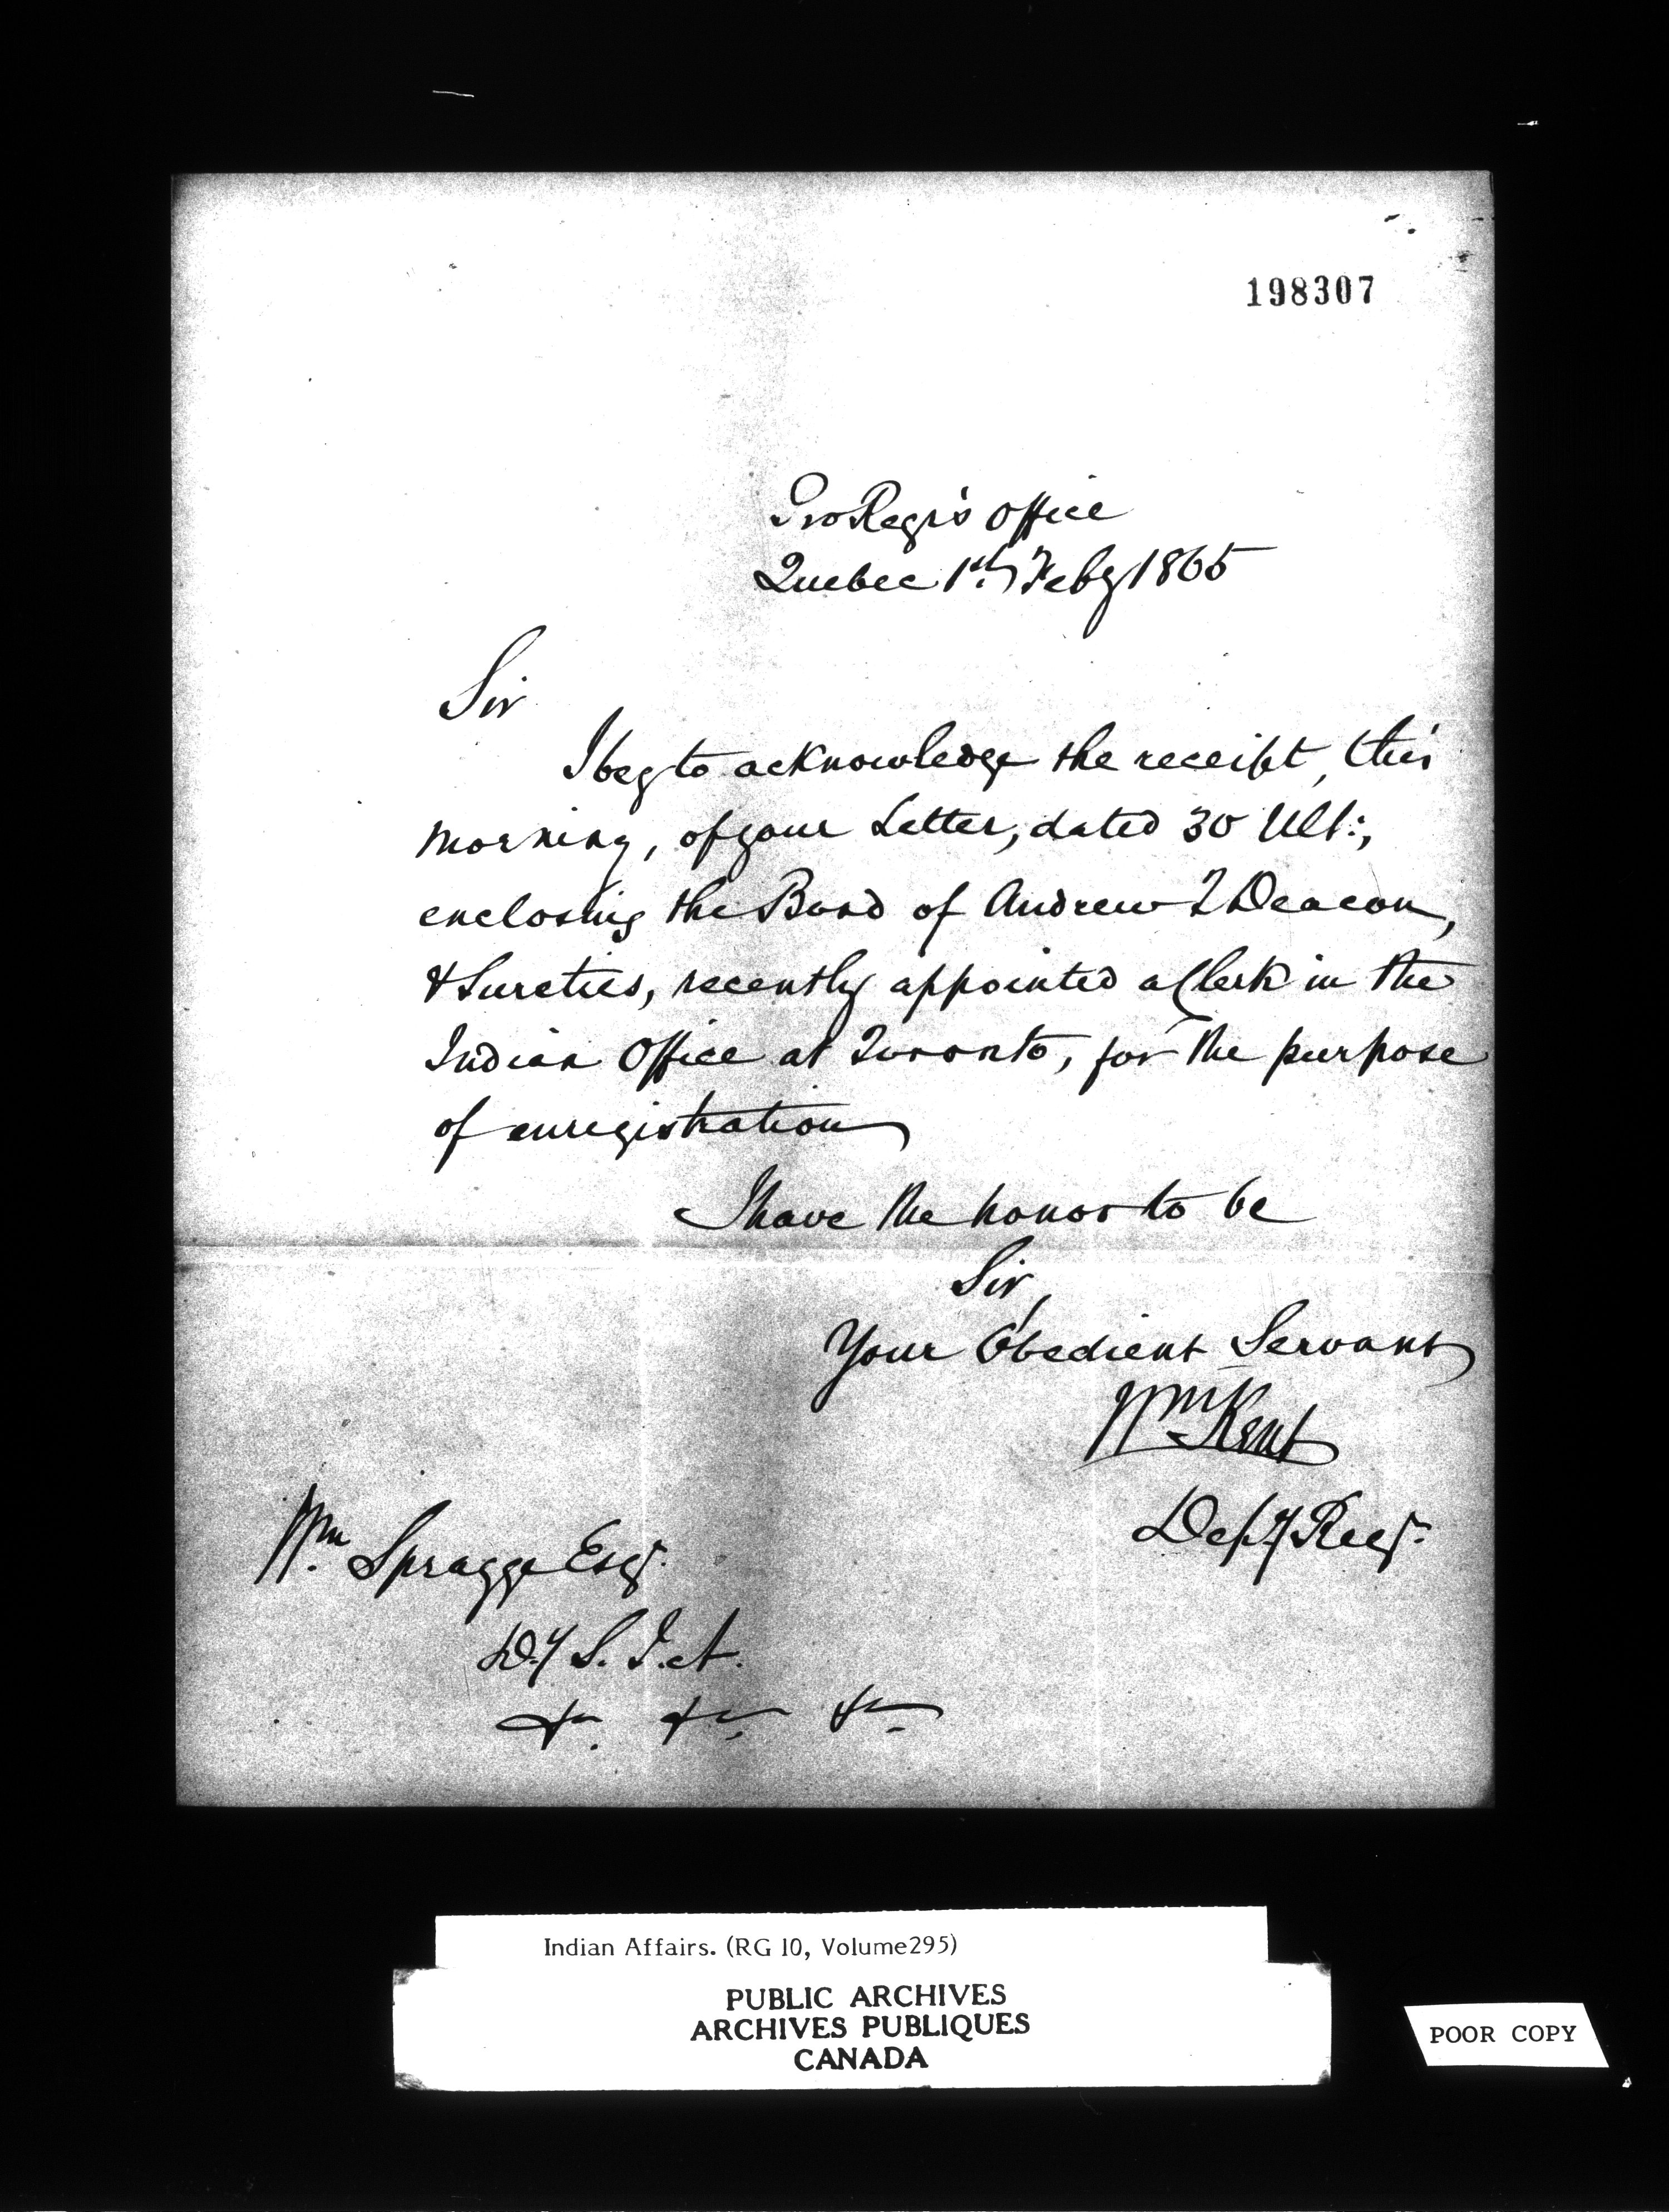 198307
ProRegr's Office
Quebec 1st Feby 1865
Sir
I beg to acknowledge the receipt, this
morning, of your Letter, dated 30 Ult:,
enclosing the Bond of Andrew T Deacon,
& Sureties, recently appointed a Clerk in the
Indian Office at Toronto, for the purpose
of enregistration
I have the honor to be
Sir,
Your Obedient Servant
Wm Kent
Depy Regr.
Wm. Spragge Esqr.
D.y S. I. A.
&c. &c. &c.
Indian Affairs. (RG 10, Volume295)
PUBLIC ARCHIVES
ARCHIVES PUBLIQUES
CANADA
POOR COPY